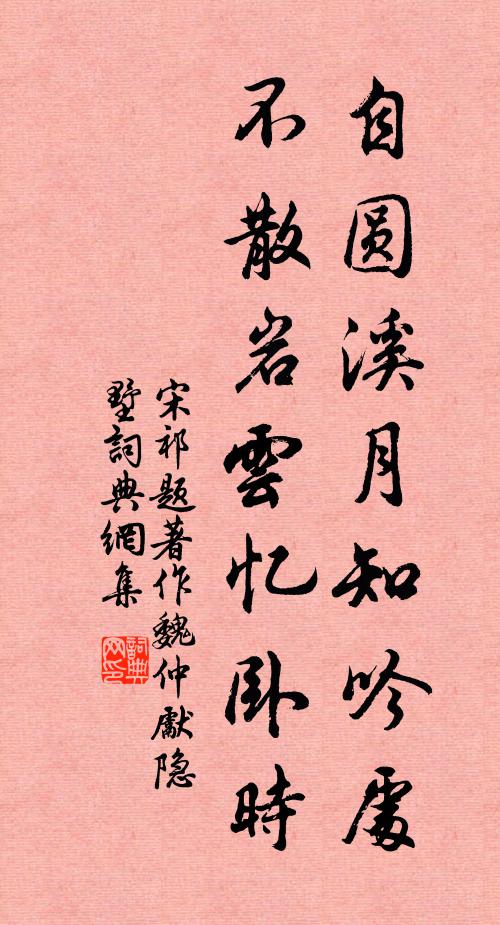 自圆溪月知吟處
不散岩雲忆卧時
宋祁题著作魏仲獻隐
墅詞典網集
詞典
网印